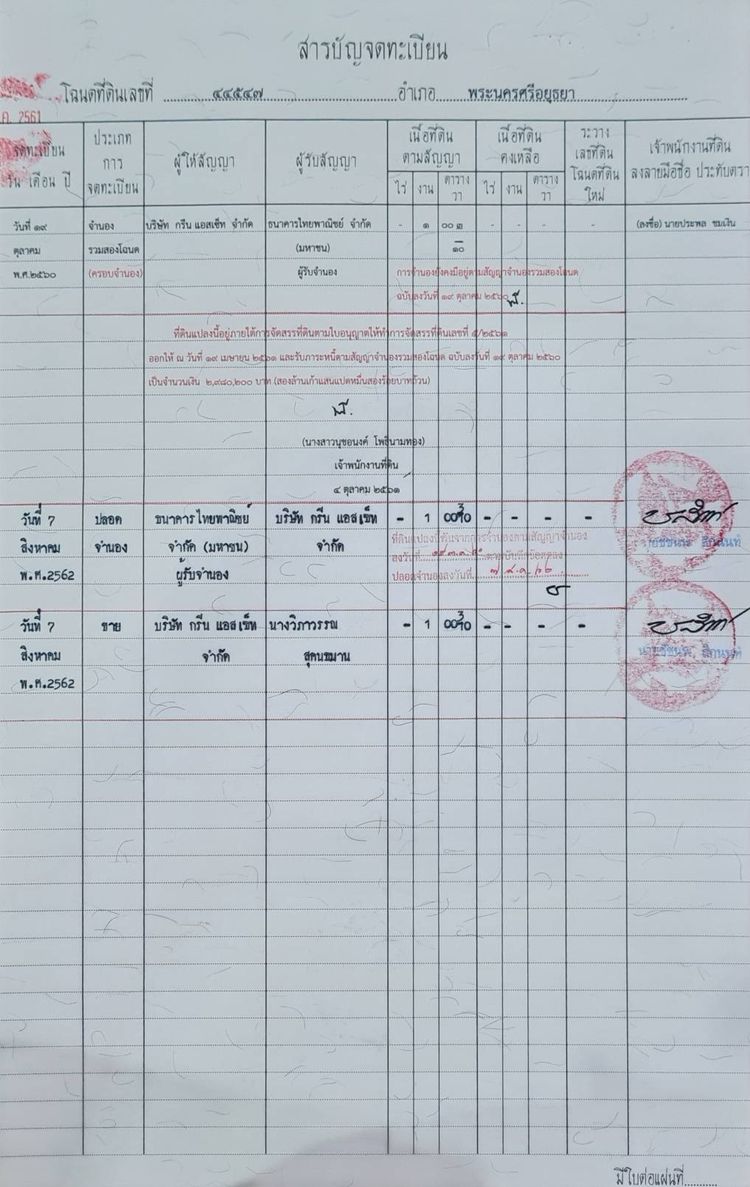 สารบัญจดทะเบียน
โฉนดที่ดินเลขที่ ๔๔๕๔๗ อำเภอ พระนครศรีอยุธยา
ค. 2561
จดทะเบียน วัน เดือน ปี
ประเภท การ จดทะเบียน
ผู้ให้สัญญา
ผู้รับสัญญา
เนื้อที่ดิน ตามสัญญา
ไร่ งาน ตาราง วา
เนื้อที่ดิน คงเหลือ
ไร่ งาน ตาราง วา
ระวาง เลขที่ดิน โฉนดที่ดิน ใหม่
เจ้าพนักงานที่ดิน ลงลายมือชื่อ ประทับตรา
วันที่ ๑๙ จำนอง บริษัท กรีน แอสเซ็ท จำกัด ธนาคารไทยพาณิชย์ จำกัด - ๑ ๐๐ ๓/๑๐ - - - - (ลงชื่อ) นายประพล ชมเงิน
ตุลาคม รวมสองโฉนด (มหาชน)
พ.ศ.๒๕๖๐ (ครอบจำนอง) ผู้รับจำนอง การจำนองยังคงมีอยู่ตามสัญญาจำนองรวมสองโฉนด
ฉบับลงวันที่ ๑๙ ตุลาคม ๒๕๖๐
ที่ดินแปลงนี้อยู่ภายใต้การจัดสรรที่ดินตามใบอนุญาตให้ทำการจัดสรรที่ดินเลขที่ ๕/๒๕๖๑
ออกให้ ณ วันที่ ๑๙ เมษายน ๒๕๖๑ และรับภาระหนี้ตามสัญญาจำนองรวมสองโฉนด ฉบับลงวันที่ ๑๙ ตุลาคม ๒๕๖๐
เป็นจำนวนเงิน ๒,๙๘๐,๒๐๐ บาท (สองล้านเก้าแสนแปดหมื่นสองร้อยบาทถ้วน)
(นางสาวนุชอนงค์ โพธิ์นามทอง)
เจ้าพนักงานที่ดิน
๔ ตุลาคม ๒๕๖๑
วันที่ 7 ปลอด ธนาคารไทยพาณิชย์ บริษัท กรีน แอสเซ็ท - 1 00 ๓/๑๐ - - - -
สิงหาคม จำนอง จำกัด (มหาชน) จำกัด
พ.ศ.2562 ผู้รับจำนอง
ที่ดินแปลงนี้พ้นจากการจำนองตามสัญญาจำนอง
ลงวันที่
ปลอดจำนองลงวันที่
วันที่ 7 ขาย บริษัท กรีน แอสเซ็ท นางวิภาวรรณ - 1 00 ๓/๑๐ - - - -
สิงหาคม จำกัด สุคนขมาน
พ.ศ.2562
มีใบต่อแผ่นที่